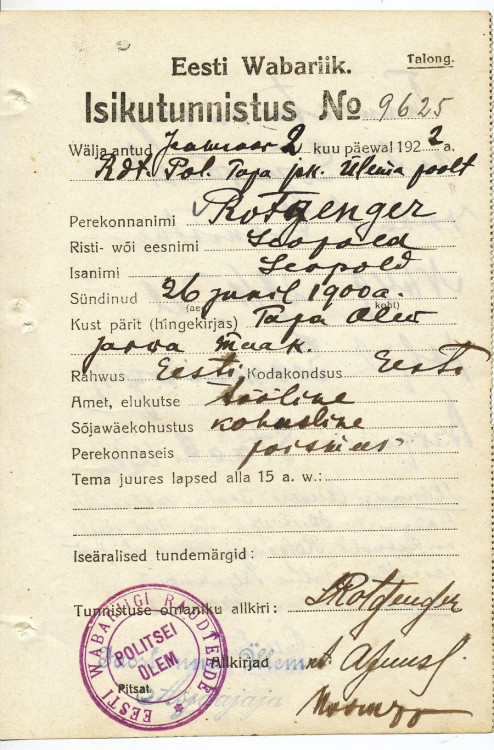 Talong.
Eesti Wabariik.
Isikutunnistus № 9625
Wälja antud Jaanuar 2 kuu päewal 1922 a.
Rdt. Pol. Tapa jsk. Ülema poolt
Perekonnanimi Rotgenger
Risti- wõi eesnimi Leopold
Isanimi Leopold
Sündinud 26 juuil 1900a.
(aeg koht)
Kust pärit (hingekirjas) Tapa Alew
Jarwa Maak.
Rahwus Eesti Kodakondsus Eesti
Amet, elukutse tööline
Sõjawäekohustus kohusline
Perekonnaseis poismees
Tema juures lapsed alla 15 a. w.:
Iseäralised tundemärgid:
Tunnistuse omaniku allkiri: LRotgenger
Allkirjad
Pitsat
EESTI WABARIIGI RAUDTEEDE
POLITSEI
ÜLEM